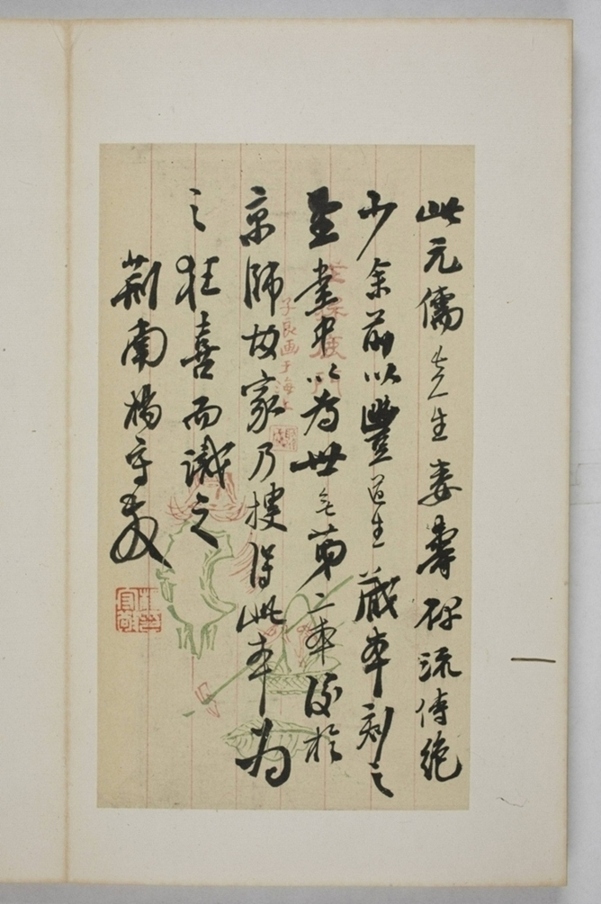 此元儒先生婁壽碑流傳絕
少余前以豐道生藏本刻之
望堂中以為世无第二本後於
京師故家乃搜得此本為
之狂喜而識之
荊南楊守敬
子良画于海上